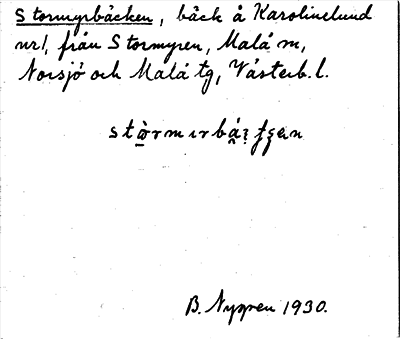 Stormyrbäcken, bäck å Karolinelund
nr1, från Stormyren, Malå sn,
Norsjö och Malå tg, Västerb. l.
B. Nygren 1930.